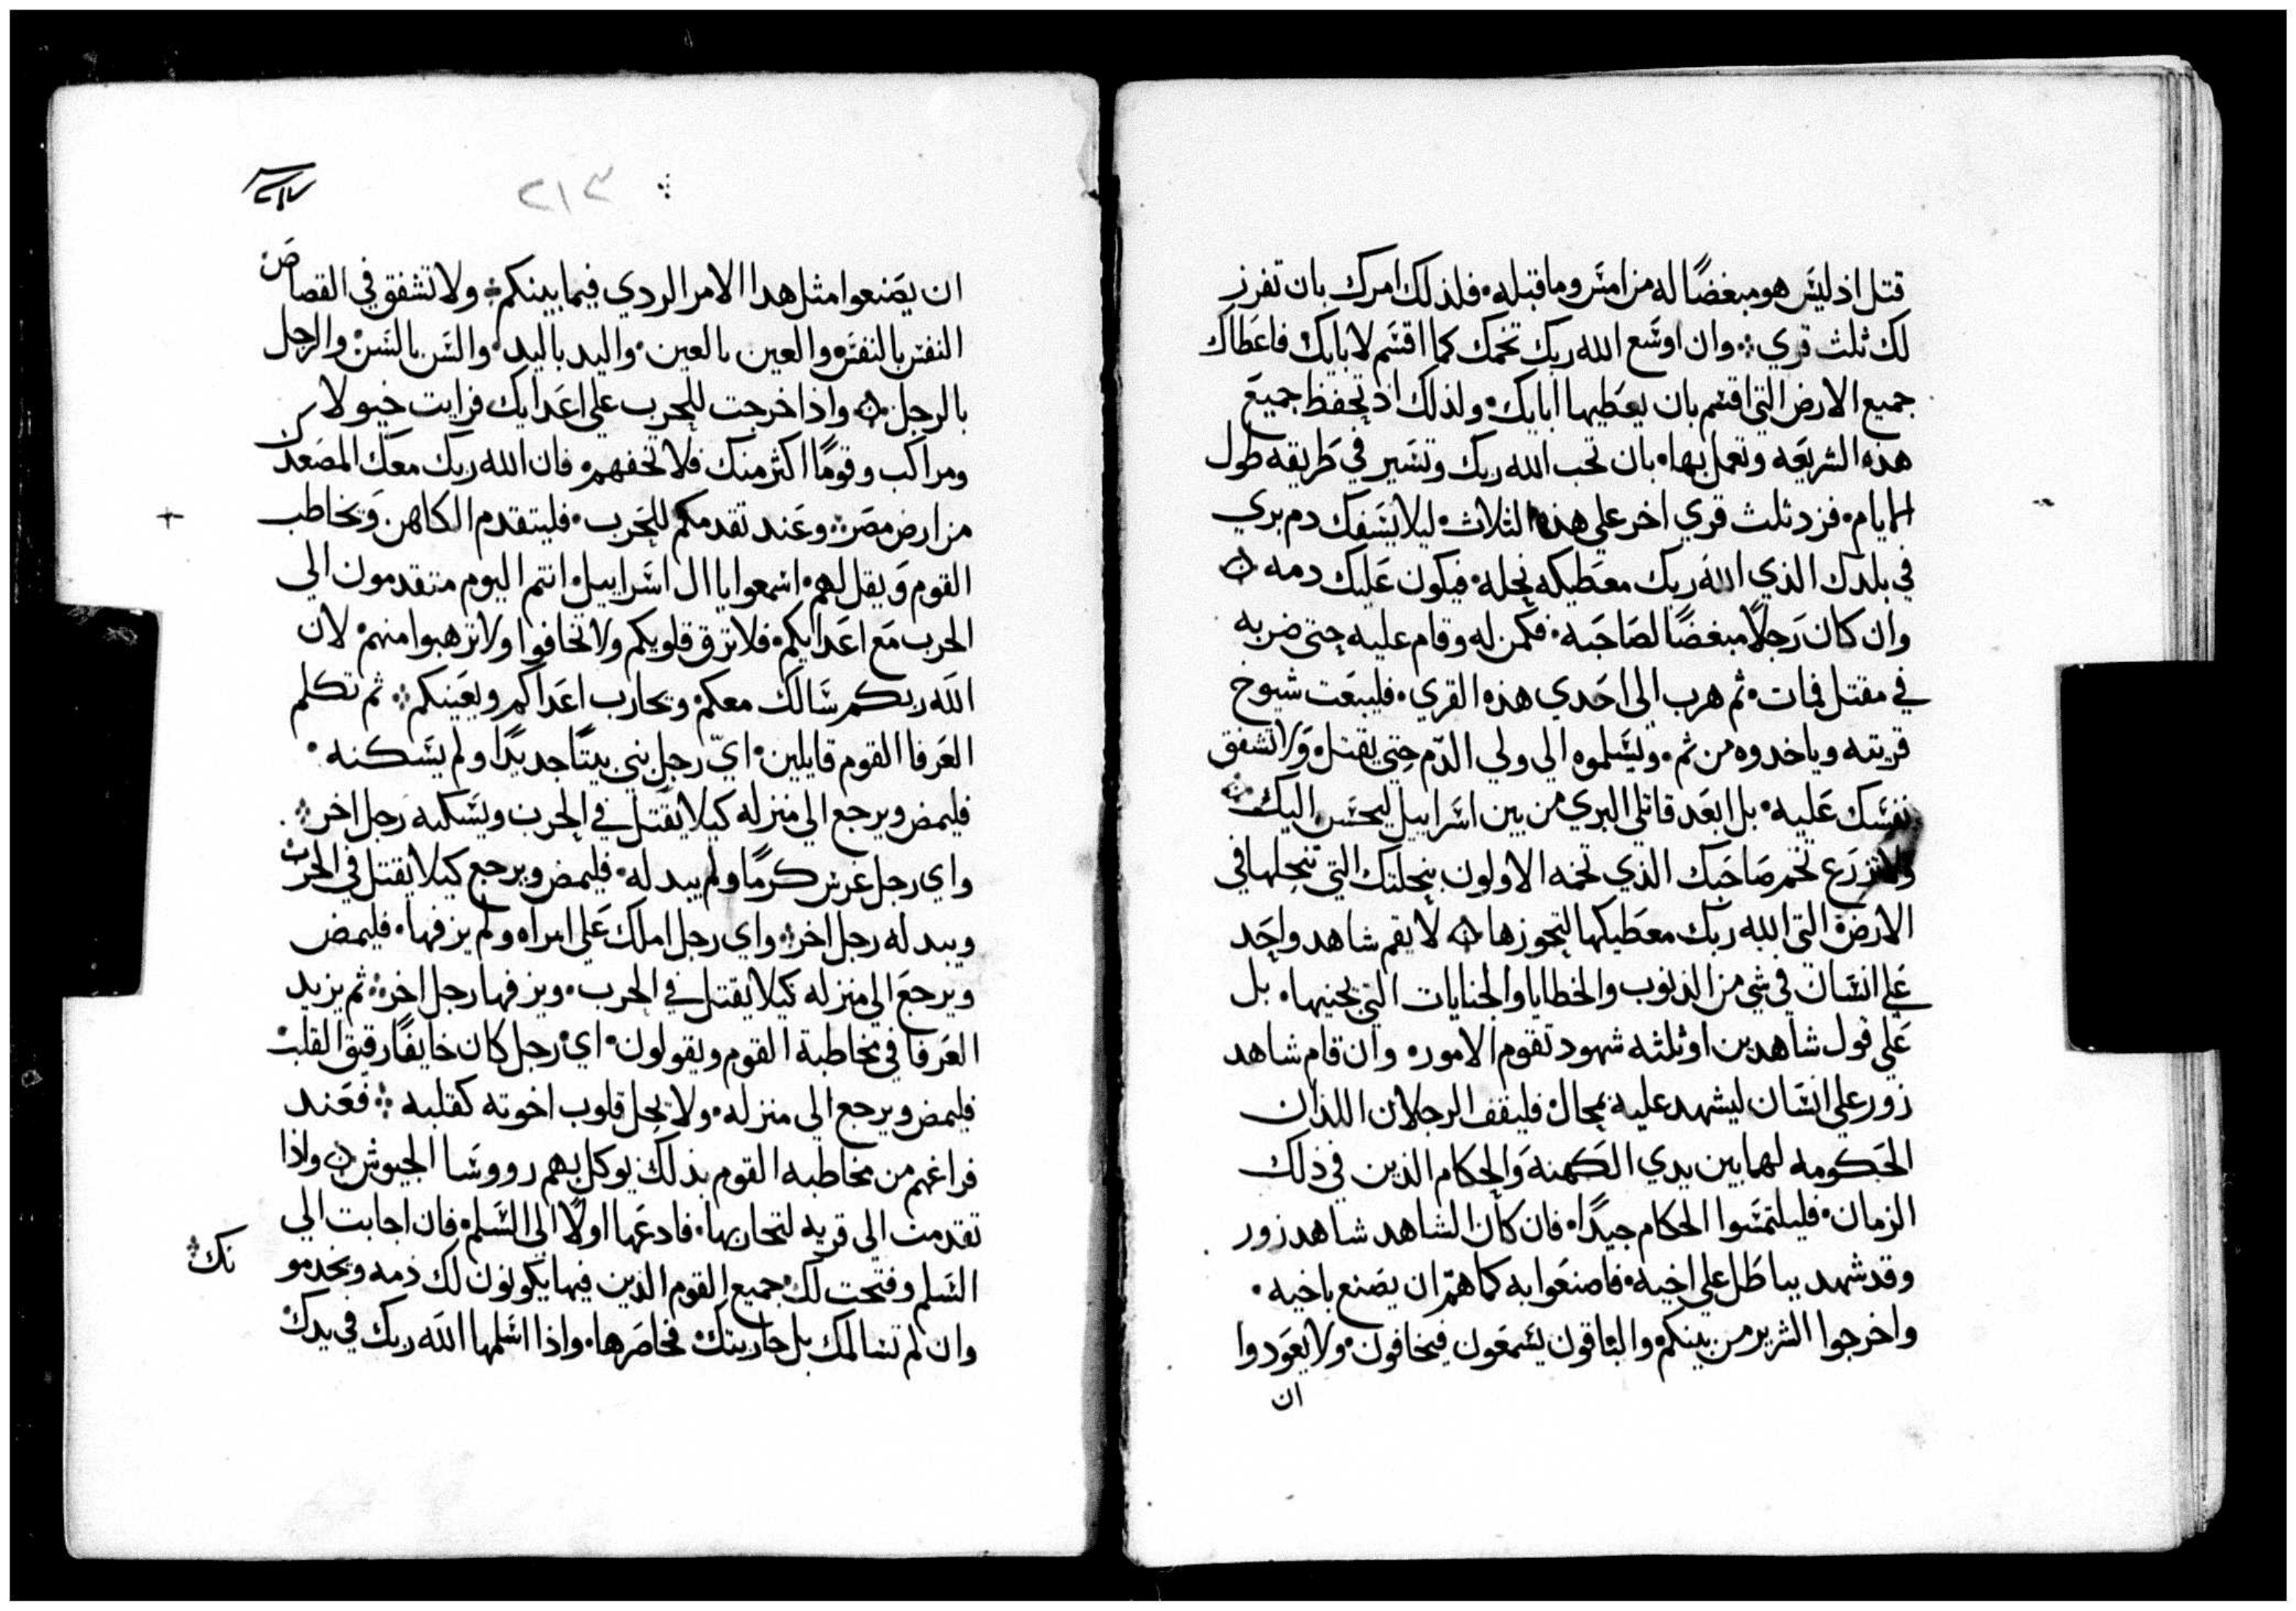 قتل اذ ليس هو مبغضًا له من امس وما قبله فلذلك امرك بان تفرز
لك ثلث قري وان اوسع الله ربك تخمك كما اقسم لابايك فاعطاك
جميع الارض التي اقسم بان يعطيها ابايك ولذلك اذ تحفظ جميع
هذه الشريعه وتعمل بها بان تحب الله ربك وتسير في طريقه طول
الايام فزد ثلث قري اخر علي هذه الثلاث ليلا يسفك دم بري
في بلدك الذي الله ربك معطيكه نحله فيكون عليك دمه
وان كان رجلاً مبغضًا لصاحبه فكمن له وقام عليه حتى ضربه
في مقتل فمات ثم هرب الى احدي هذه القري فليبعت شيوخ
قريته وياخدوه من ثم ويسلموه الى ولي الدّم حتي يقتله ولا تشفق
نفسك عليه بل ابعد قاتل البري من بين اسراييل ليحسن اليك
ولا تزرع تخم صاحبك الذي تخمه الاولون بنحلتك التي تنحلها في
الارض التي الله ربك معطيكها لتحوزها لا يقم شاهد واحد
علي انسان في شي من الذنوب والخطايا والجنايات التي يجنيها بل
علي قول شاهدين او ثلثه شهود تقوم الامور وان قام شاهد
زور علي انسان ليشهد عليه بمحال فليقف الرجلان اللذان
الحكومه لهما بين يدي الكهنة والحكام الذين في ذلك
الزمان فليلتمسوا الحكام جيدًا فان كان الشاهد شاهد زور
وقد شهد بباطل علي اخيه فاصنعوا به كما همّ ان يصنع باخيه
واخرجوا الشرير من بينكم والباقون يسمعون فيخافون ولا يعودوا
ان
٢١٣
ان يصنعوا مثل هدا الامر الردي فيما بينكم ولا تشفق في القصاص
النفس بالنفس والعين بالعين واليد باليد والسن بالسن والرجل
بالرجل واذا خرجت للحرب علي اعدايك فرايت خيولا
ومراكب وقومًا اكثر منك فلا تخفهم فان الله ربك معك المصعدك
من ارض مصر وعند تقدمكم للحرب فليتقدم الكاهن ويخاطب
القوم ويقل لهم اسمعوا يا ال اسراييل انتم اليوم متقدمون الي
الحرب مع اعدايكم فلا ترق قلوبكم ولا تخافوا ولا ترهبوا منهم لان
الله ربكم سالك معكم ويحارب اعداكم ويعينكم ثم تكلم
العرفا القوم قايلين ايّ رجل بني بيتًا جديدًا ولم يسكنه
فليمض ويرجع الي منزله كيلا يقتل في الحرب ويسكنه رجل اخر
واي رجل غرس كرمًا ولم يبد له فليمض ويرجع كيلا يقتل في الحرب
ويبد له رجل اخر واي رجل املك علي امراه ولم يزفها فليمض
ويرجع الي منزله كيلا يقتل في الحرب ويزفها رجل اخر ثم يزيد
العرفا في مخاطبة القوم ويقولون اي رجل كان خايفًا رقيق القلب
فليمض ويرجع الي منزله ولا يحل قلوب اخوته كقلبه فعند
فراغهم من مخاطبه القوم بذلك يوكل بهم رووسا الجيوش واذا
تقدمت الى قريه لتحاربها فادعها اولاً الى السلم فان اجابت الي
السلم وفتحت لك جميع القوم الذين فيها يكونون لك ذمه ويخدمونك
وان لم تسالمك بل حاربتك فحاصرها واذا اسلمها الله ربك في يدك